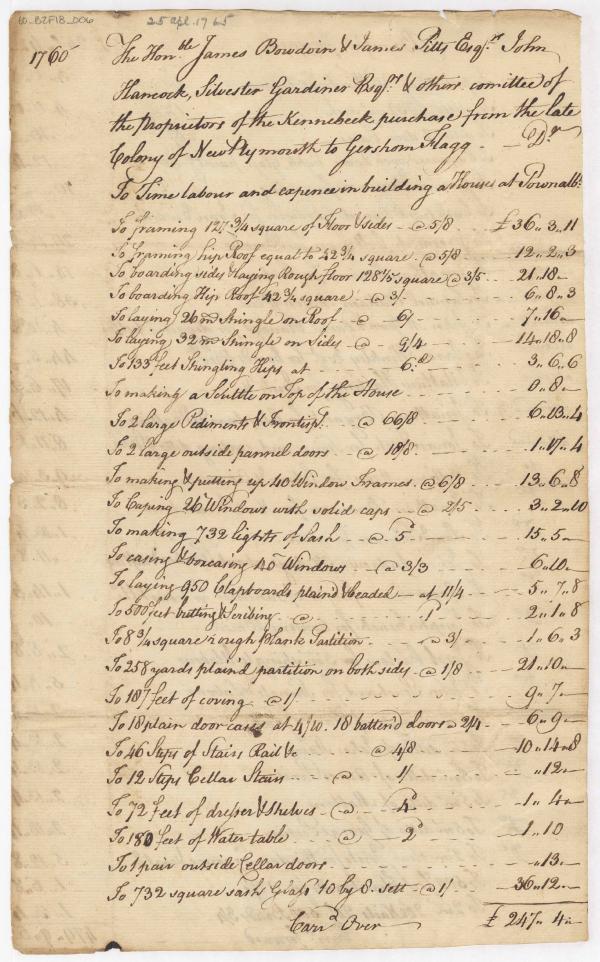 LO_B2F18_D06 25 apl. 1765
1765 The Honble James Bowdoin & James Pitts Esqrs John
Hancock, Silvester Gardiner Esqrs & others comittee of
the Proprietors of the Kennebeck purchase from the late
Colony of New Plymouth to Gershom Flagg - Dr
To Time labour and expence in building a House at Pownalbo
To framing 127 3/4 square of Floor & sides - @ 5/8 £36..3..11
To framing hip Roof equal to 42 3/4 square @ 5/8 12..2..3
To boarding sides & laying Rough floor 128 1/5 square @ 3/5 21..18..-
To boarding Hip Roof 42 3/4 square @ 3/ 6..8..3
To laying 26m Shingle on Roof @ 6/ 7..16..-
To laying 32m Shingle on Sides @ 9/4 14..18..8
To 133 feet Shingling Hips at 6d 3..6..6
To making a Scuttle on Top of the House 0..8..-
To 2 large Pediments & Frontispt. @ 66/8 6..13..4
To 2 large outside pannel doors @ 18/8 1..17..4
To making & putting up 40 Window Frames @ 6/8 13..6..8
To Caping 26 Windows with solid caps @ 2/5 3..2..10
To making 732 lights of Sash @ 5d 15..5..-
To casing & boxcasing 40 Windows @ 3/3 6..10..-
To laying 950 Clapboards plaind & beaded at 11/4 5..7..8
To 500 feet butting & Scribing @ 1d 2..1..8
To 8 3/4 square rough plank Partition @ 3/ 1..6..3
To 258 yards plain'd partition on both sides @ 1/8 21..10..-
To 187 feet of coving @ 1/ 9..7..-
To 18 plain door cases at 4/10. 18 battend doors @ 2/4 6..9..-
To 46 Steps of Stairs Rail &c @ 4/8 10..14..8
To 12 Steps Cellar Stairs @ 1/ ..12..-
To 72 feet of dresser & shelves @ 4d 1..4..-
To 180 feet of Water table @ 2d 1..10
To 1 pair outside Cellar doors ..13..-
To 732 square sash Glass 10 by 8 sett @ 1/ 36..12..-
Carrd Over £247..4..-